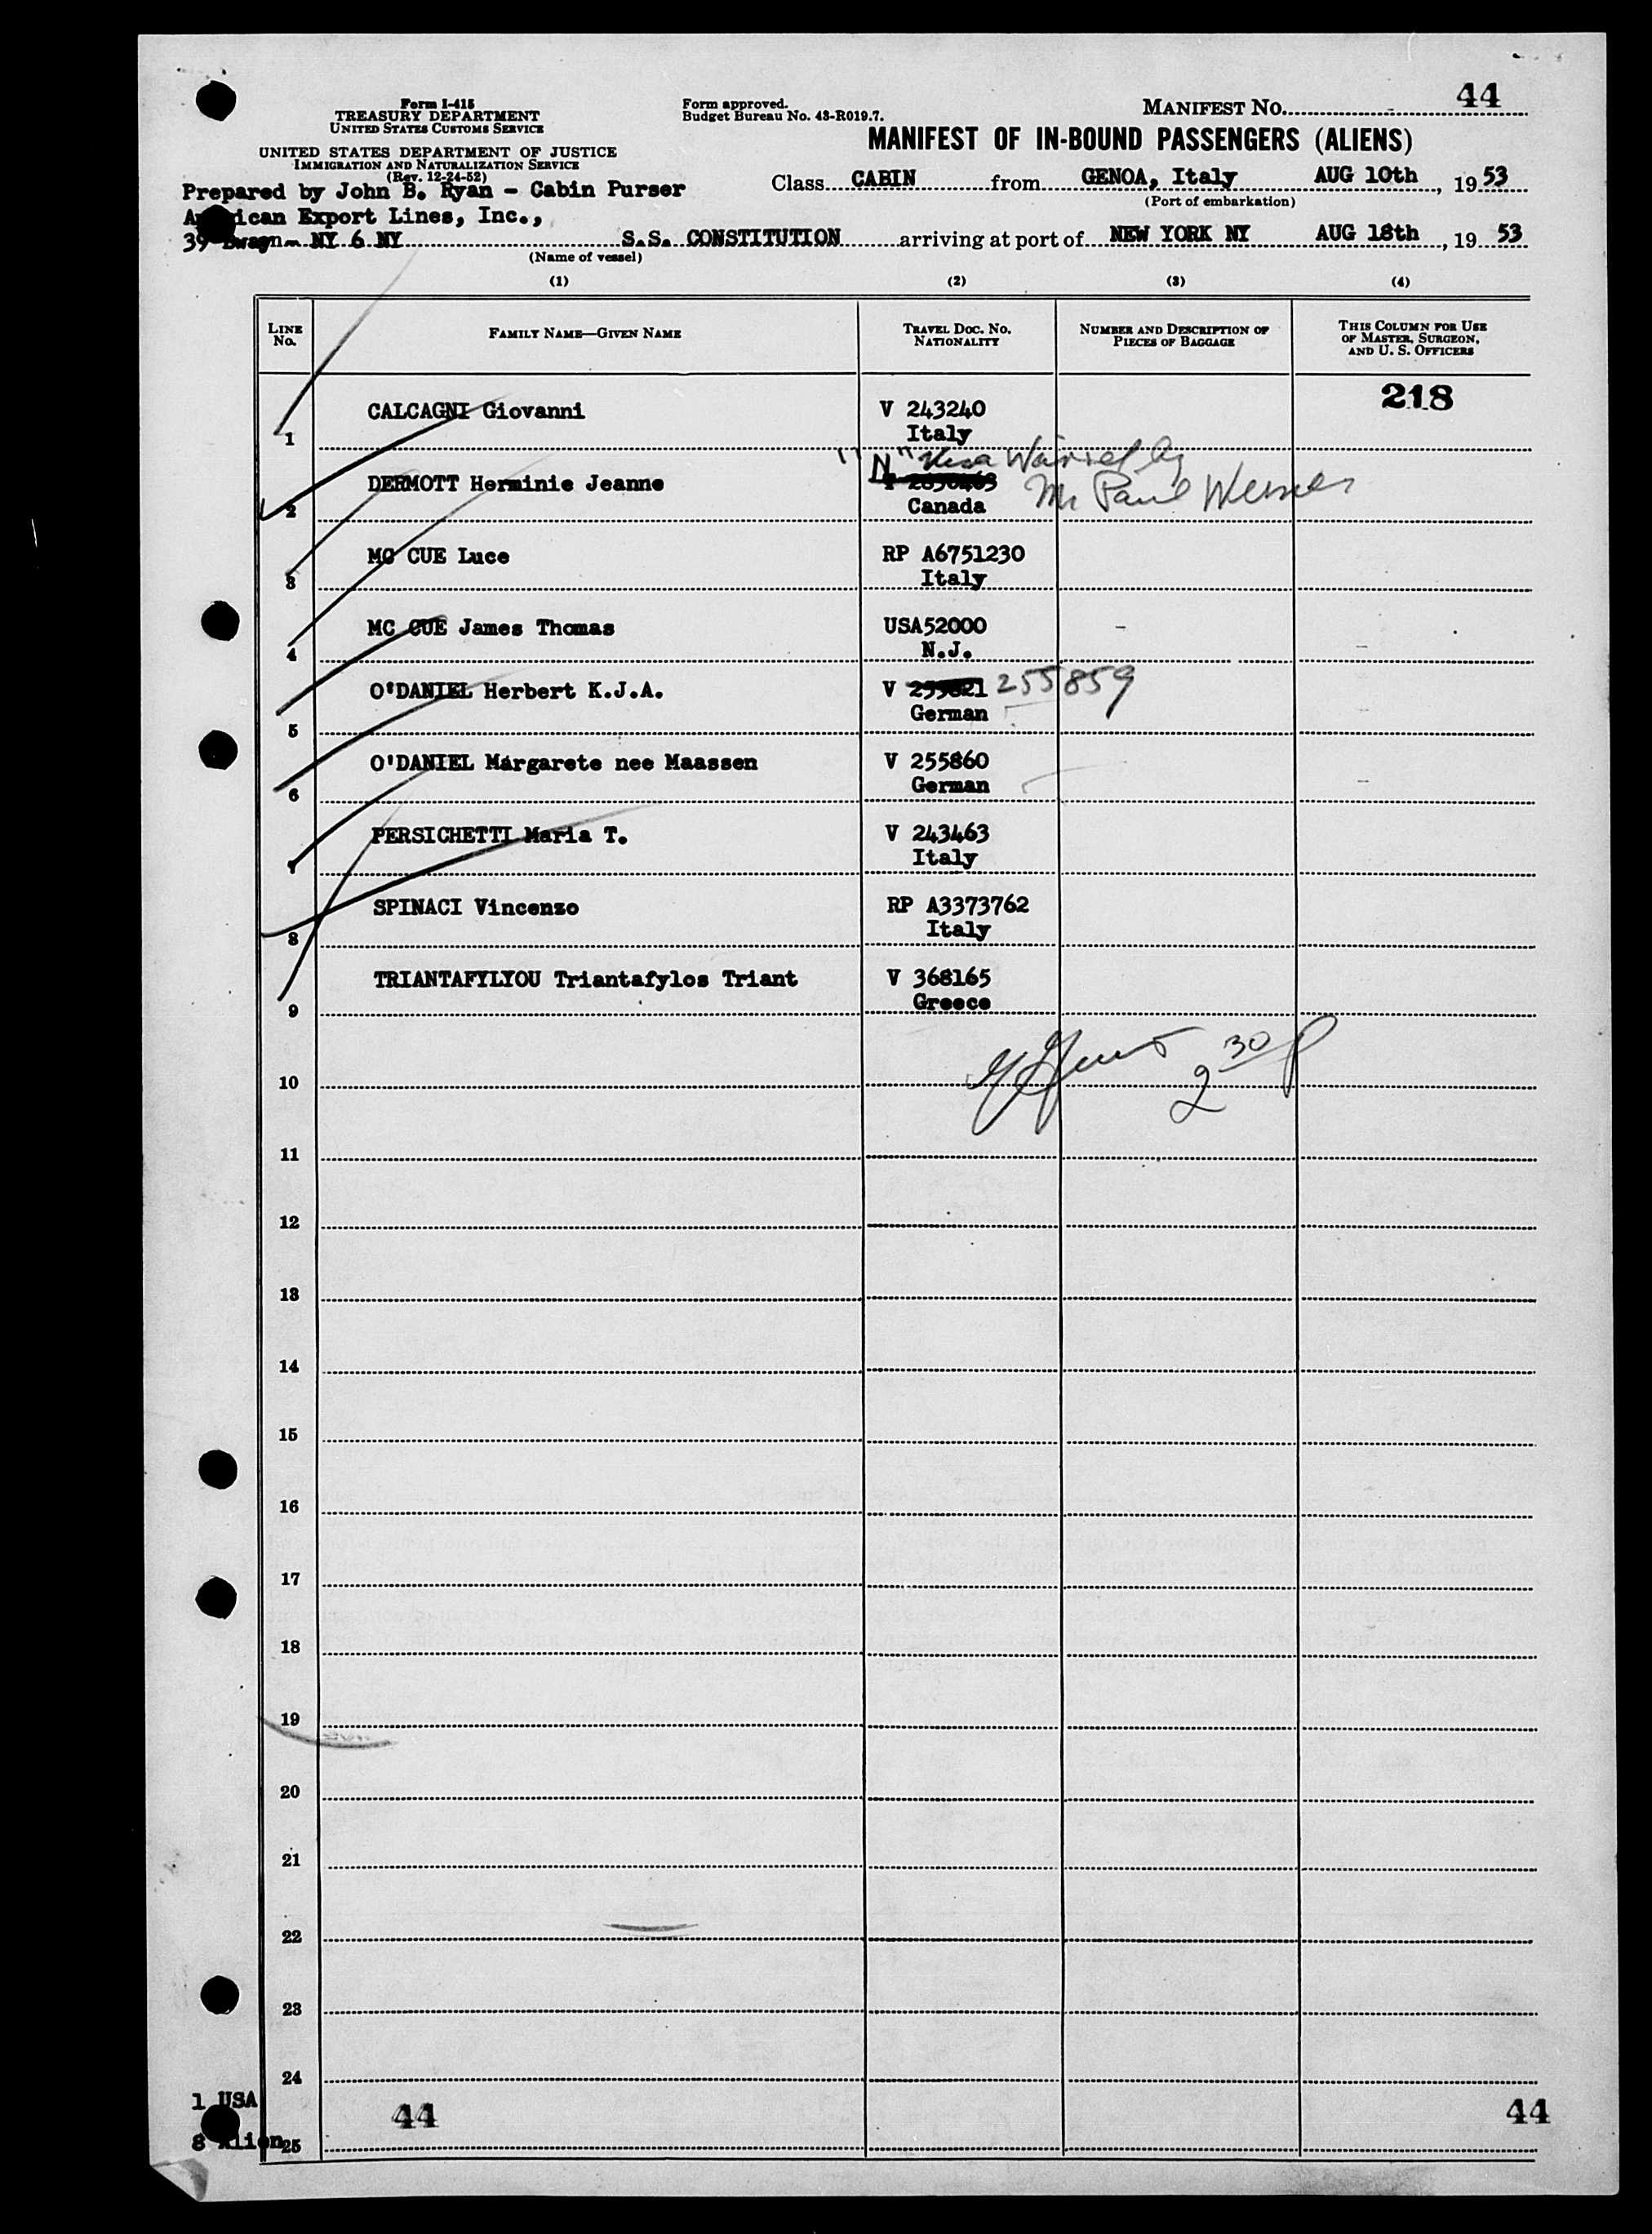 44
Form I-415
TREASURY DEPARTMENT
UNITED STATES CUSTOMS SERVICE
UNITED STATES DEPARTMENT OF JUSTICE
IMMIGRATION AND NATURALIZATION SERVICE
(Rev. 12-24-52)
Form approved.
Budget Bureau No. 43-R019.7.
MANIFEST NO.
MANIFEST OF IN-BOUND PASSENGERS (ALIENS)
Prepared by John B. Ryan - Cabin Purser
Class CABIN from GENOA, Italy AUG 10th, 19 53
(Port of embarkation)
American Export Lines, Inc.,
39 NY 6 NY S.S. CONSTITUTION arriving at port of NEW YORK NY AUG 18th, 19 53
(Name of vessel)
(1) (2) (3) (4)
LINE NO. FAMILY NAME—GIVEN NAME TRAVEL DOC. NO. NATIONALITY NUMBER AND DESCRIPTION OF PIECES OF BAGGAGE THIS COLUMN FOR USE OF MASTER, SURGEON, AND U. S. OFFICERS
218
1 CALCAGNI Giovanni V 243240
Italy
"N" Visa Waived by
2 DERMOTT Herminie Jeanne Mr Paul
Canada
3 MC CUE Luce RP A6751230
Italy
4 MC CUE James Thomas USA52000
N.J.
5 O'DANIEL Herbert K.J.A. V 255859
German
6 O'DANIEL Margarete nee Maassen V 255860
German
7 PERSICHETTI Maria T. V 243463
Italy
8 SPINACI Vincenzo RP A3373762
Italy
9 TRIANTAFYLYOU Triantafylos Triant V 368165
Greece
2 30 p
10
11
12
13
14
15
16
17
18
19
20
21
22
23
24
1 USA
44 44
8 Alien 25